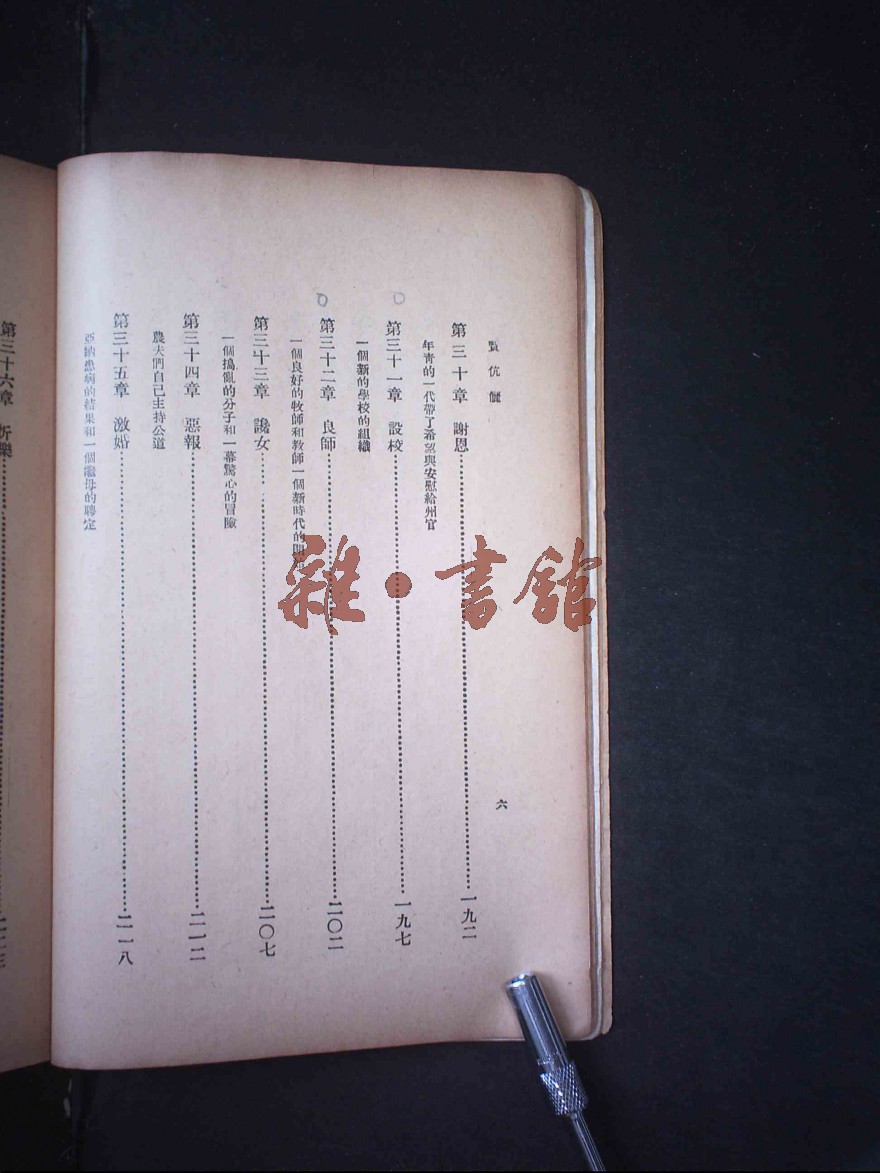 賢伉儷
六
第三十章 謝恩 一九二
年靑的一代帶了希望與安慰給州官
第三十一章 設校 一九七
一個新的學校的組織
第三十二章 良師 二〇二
一個良好的牧師和敎師一個新時代的開
第三十三章 讒女 二〇七
一個搗亂的分子和一幕驚心的冒險
第三十四章 惡報 二一二
農夫們自己主持公道
第三十五章 激婚 二一八
亞納患病的結果和一個繼母的聘定
第三十六章 樂 二二三
雜·書館